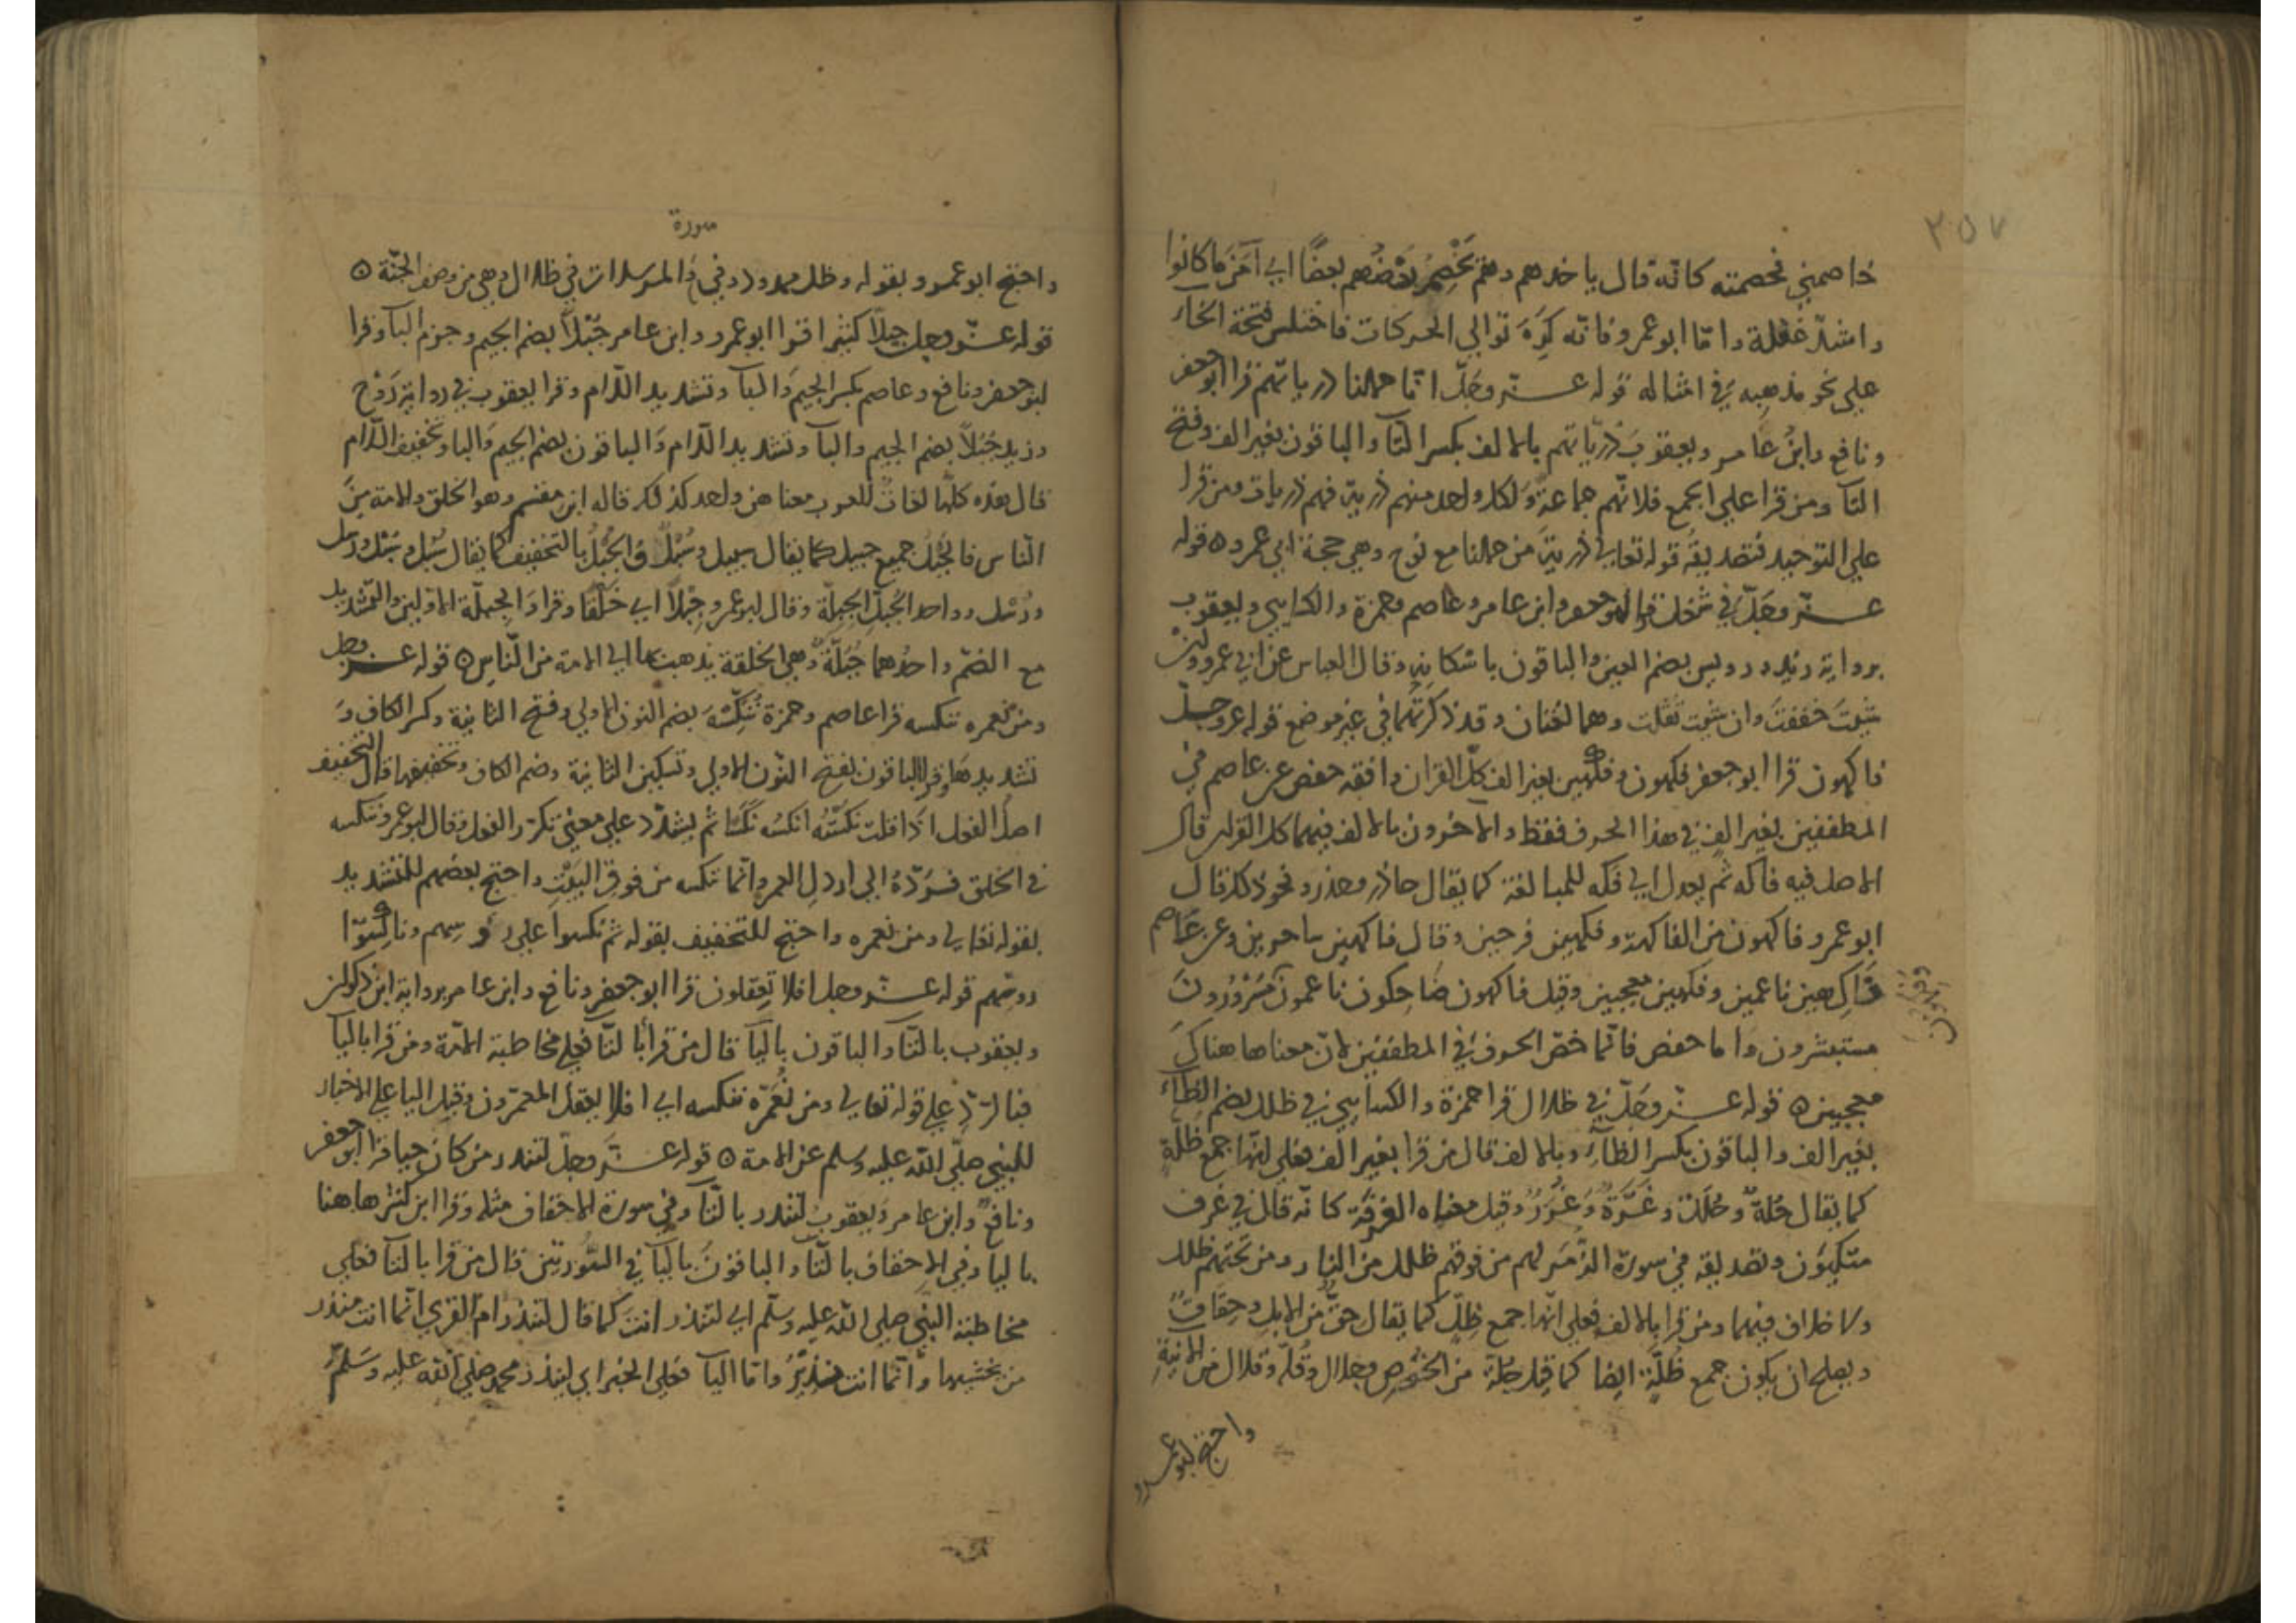 ٣٥٧
خاصمني فخصمته كانّه قال ياخذهم وهم يَخْصِمُ بَعْضُهم بعضًا اي آمَنَ ما كانوا
واشدّ غفلة وامّا ابوعمرو فانّه كَرِهَ توالي الحركات فاختلس فتحة الخاء
علي نحو مذهبه في امثاله قوله عــزّ وجَلّ انّا حملنا ذرياتهم قرا ابو جعفر
ونافع وابنُ عامر ويعقوبَ ذرّياتهم بالالف بكسر التآ والباقون بغير الف وفتح
التآ ومن قرا علي الجمع فلانّهم جماعةٌ ولكل واحد منهم ذريّة فهم ذريات ومن قرا
علي التوحيد فتصديقُه قوله تعالي ذريّة من حملنا مع نوح وهي حجة ابي عمرو ٥ قوله
عــزّ وجَلّ في شغل قرا ابو جعفر وابن عامر وعاصم وحمزة والكسايي ويعقوب
برواية زيد ورويس بضم الغين والباقون باسكانها وقال العباس عن ابي عمرو ان
شيتَ خففتَ وان شيت ثقلت وهما لغتان وقد ذكرتهما في غير موضع قوله عز وجــل
فاكهون قرا ابو جعفر فكهون وفكهين بغير الف كلّ القران وافقه حفص عن عاصم في
المطففين بغير الف في هذا الحرف فقط والاخرون بالالف فيهما كل القران قال
الاصل فيه فاكه ثم يعدل الي فكه للمبالغة كما يقال حاذر وحذر ونحو ذلك قال
ابو عمرو فاكهون من الفاكهة وفكهين فرحين وقال فاكهين ساحرين وعن عَاصم
فَاكِهين ناعمين وفكهين معجبين وقيل فاكهون ضَاحِكون ناعمون مَسْرُورُونَ
مستبشرون وَاما حفص فانّما خصّ الحرف في المطففين لانّ معناها هناكَ
معجبين ٥ قوله عــزّ وجَلّ في ظلال قرا حمزة والكسايي في ظلل بضم الظآء
بغير الف والباقون بكسر الظآءِ وبالالف قال من قرا بغير الف فعلي انّها جمع ظُلّةٍ
كما يقال حُلّةٌ وحُلَلٌ وغُرّةٌ وغُرَرٌ وقيل معناه الغرفة كانّه قال في غرف
متكئون وتصديقه في سورة الزُمَر لهم من فوقهم ظلل من النار ومن تحتهم ظلل
ولا خلاف فيهما ومن قرا بالالف فعلي انّها جمع ظِلّ كما يقال حقّ من الابل وحِقاقٌ
ويصلح ان يكون جمع ظُلّةٍ ايضا كما قيل جُلّة من الخُوص وجلال وقُلّة وقلال من الانية
واحتج ابو عمرو
سورة
واحتج ابو عمرو بقوله وظل ممدود وفي والمرسلات في ظلال وهي من وصف الجنّة ٥
قوله عــزّ وجل جبلًا كثيرا قرا ابو عمرو وابن عامر جُبْلاً بضم الجيم وجزم البآ وقرا
ابو جعفر ونافع وعاصم بكسر الجيم وَالبآ وتشديد اللّام وقرا يعقوب في رواية رَوْح
وزيد جُبُلاًّ بضم الجيم والبآ وتشديد اللّام وَالباقون بضم الجيم وَالبا وتخفيف اللّام
قال هذه كلّها لغاتٌ للعرب معناهن واحد كذلك قاله ابن مقسم وهو الخلق والامة مِنَ
النّاس فالجُبُلُ جميع جبيل كما يقال سبيل وسُبُلٌ والجُبْلُ بالتخفيف كما يقال سُبُل وسُبْل ورُسُل
ورُسْل وواحد الجِبِلِّ الجِبِلّة وقال ابو عمرو جِبِلاًّ اي خَلْقًا وقرا وَالجبلّة الاوّلين والتشديد
مع الضم واحدُهما جُبُلّةٌ وهي الخلقة يذهب بها الي الامة من النّاس ٥ قوله عــز وجل
ومن نعمره ننكسه قرا عاصم وحمزة نُنَكِّسْهُ بضم النون الاولي وفتح الثانية وكسر الكاف وَ
تشديدها وقرا الباقون بفتح النّون الاولي وتسكين الثانية وضم الكاف وتخفيفها قال التخفيف
اصلُ الفعل اذا قلت نكستُه انكسُه نَكْسًا ثم يشدّد علي معني تكرّر الفعل وقال ابو عمرو ننكسه
في الخلق فيردّهُ الي ارذل العمر وانّما نكسه من فوق البيت واحتج بعضهم للتشديد
بقوله تعالي ومن نعمره واحتج للتخفيف بقوله ثم نكسوا علي رؤسهم وناكسوا
روسهم قوله عــزّ وجل افلا تعقلون قرا ابو جعفر ونافع وابن عامر برواية ابن ذكوان
ويعقوب بالتّآ والباقون باليآ قال من قرأ بالتّآ فعلي مخاطبة الامّة ومن قرا باليآ
فبالردّ علي قوله تعالي ومن نُعَمّرْه ننكسه اي افلا يعقل المعمّرون وقيل اليا علي الاخبار
للنبي صلّي اللّه عليه وسلم عن الامة ٥ قوله عــزّ وجلّ لتنذر من كان حيا قرا ابو جعفر
ونافع وابن عامر ويعقوب لتنذر بالتّآ وفي سورة الاحقاف مثله وقرا ابن كثير هاهنا
باليا وفي الاحقاف بالتّآ والباقونَ باليآ في السّورتين قال من قرا بالتآ فعلي
مخاطبة النّبي صلي اللّه عليه وسلّم اي لتنذر انتَ كما قال لتنذر امّ القري انّما انت منذر
من يخشيها وانّما انت منذِرٌ وامّا اليآ فعلي الخبر اي لينذر محمد صلي اللّه عليه وسَلّمَ